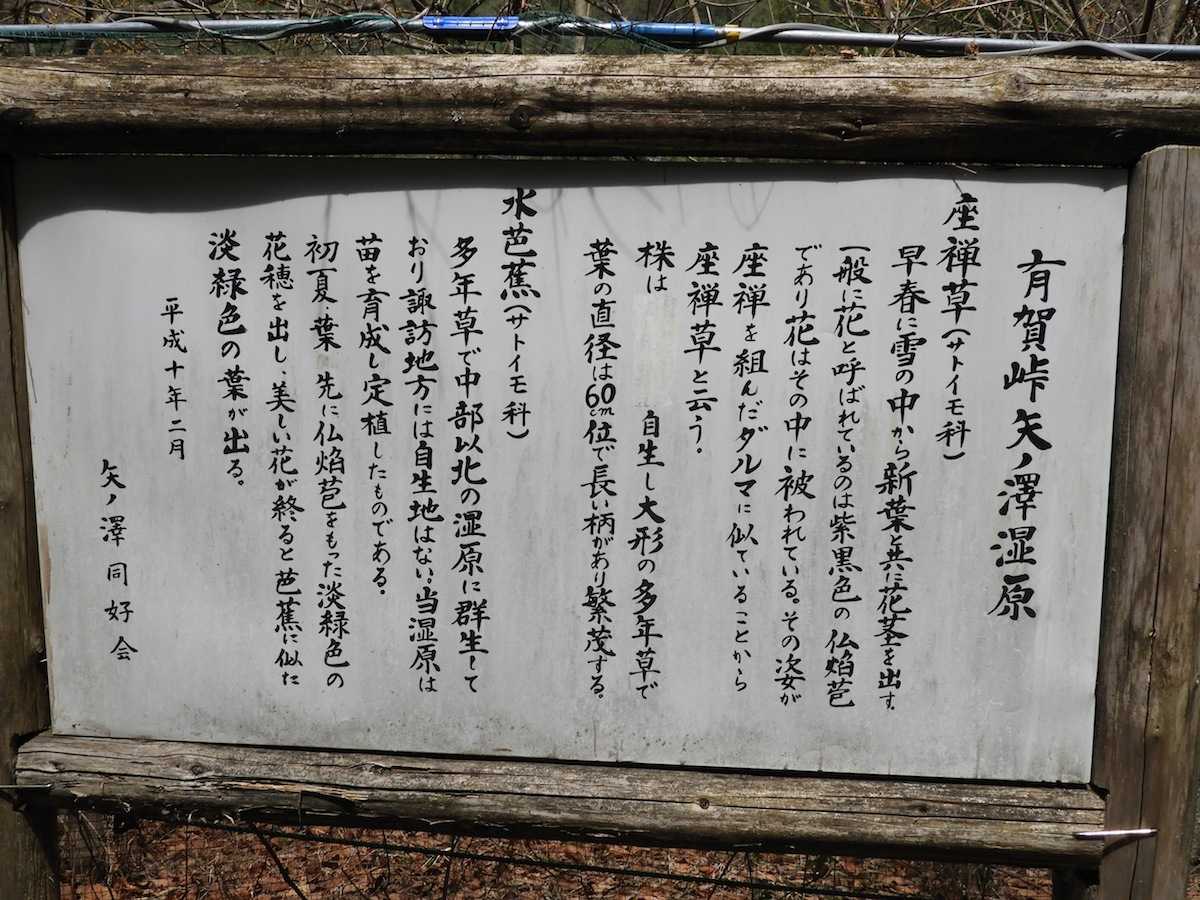 有賀峠矢ノ澤湿原
座禅草(サトイモ科)
早春に雪の中から新葉と共に花茎を出す。
一般に花と呼ばれているのは紫黒色の仏焰苞
であり花はその中に被われている。その姿が
座禅を組んだダルマに似ていることから
座禅草と云う。
株は 自生し大形の多年草で
葉の直径は60cm位で長い柄があり繁茂する。
水芭蕉(サトイモ科)
多年草で中部以北の湿原に群生して
おり諏訪地方には自生地はない。当湿原は
苗を育成し定植したものである。
初夏、葉 先に仏焰苞をもった淡緑色の
花穂を出し、美しい花が終ると芭蕉に似た
淡緑色の葉が出る。
平成十年二月
矢ノ澤同好会